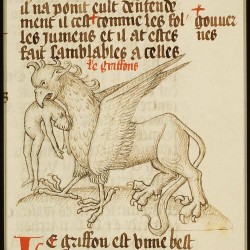 il na point eult dentende
ment il cest comme les fol
les jumens et il at estes
fait samblables a celles
gouver
nes
le griffons
Le griffon est vnne best